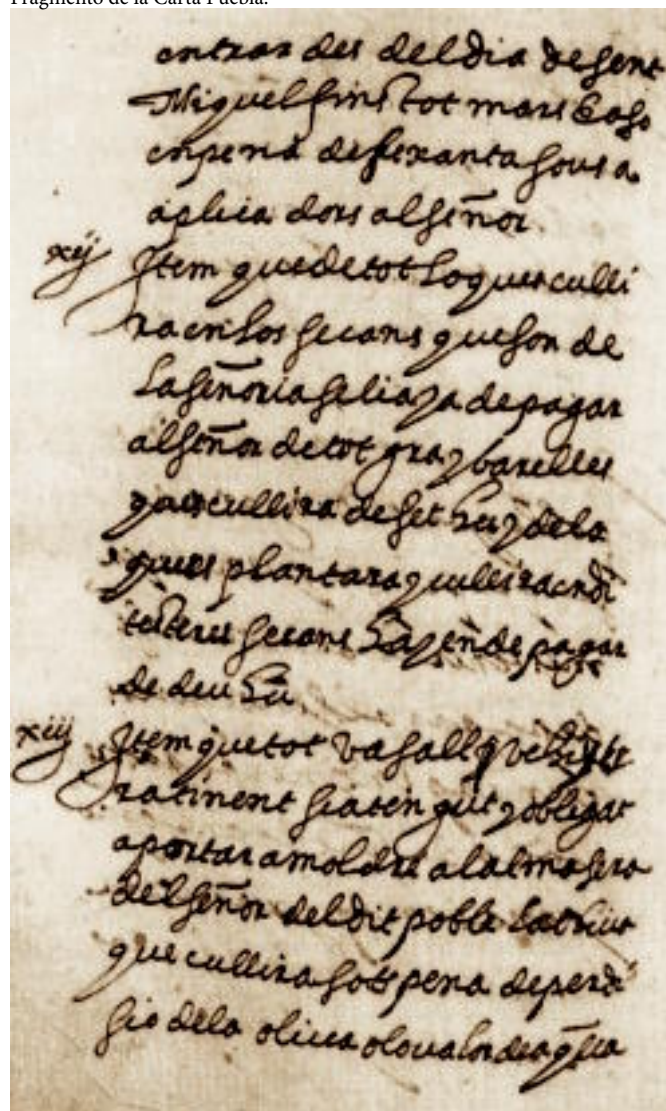 Fragmento de la Carta Puebla.
entrar des del dia de sent
Miquel fins tot mars
en pena de sexanta sous a
aplica dors al señor
xij Item que de tot lo que cculli
ra en los secans que son de
la señoria se li aja de pagar
al señor de tot gra y barelles
que cullira de set hu y de la
ques plantara y cullira en di
secans hajen de pagar
de deu hu
xiij Item que tot vasall que
ra tinent sia tengut y obligat
a portar a moldre a la almasera
del señor del dit poble la oliva
que cullira sots pena de perdi
sio de la oliva o lo valor de aq̃lla